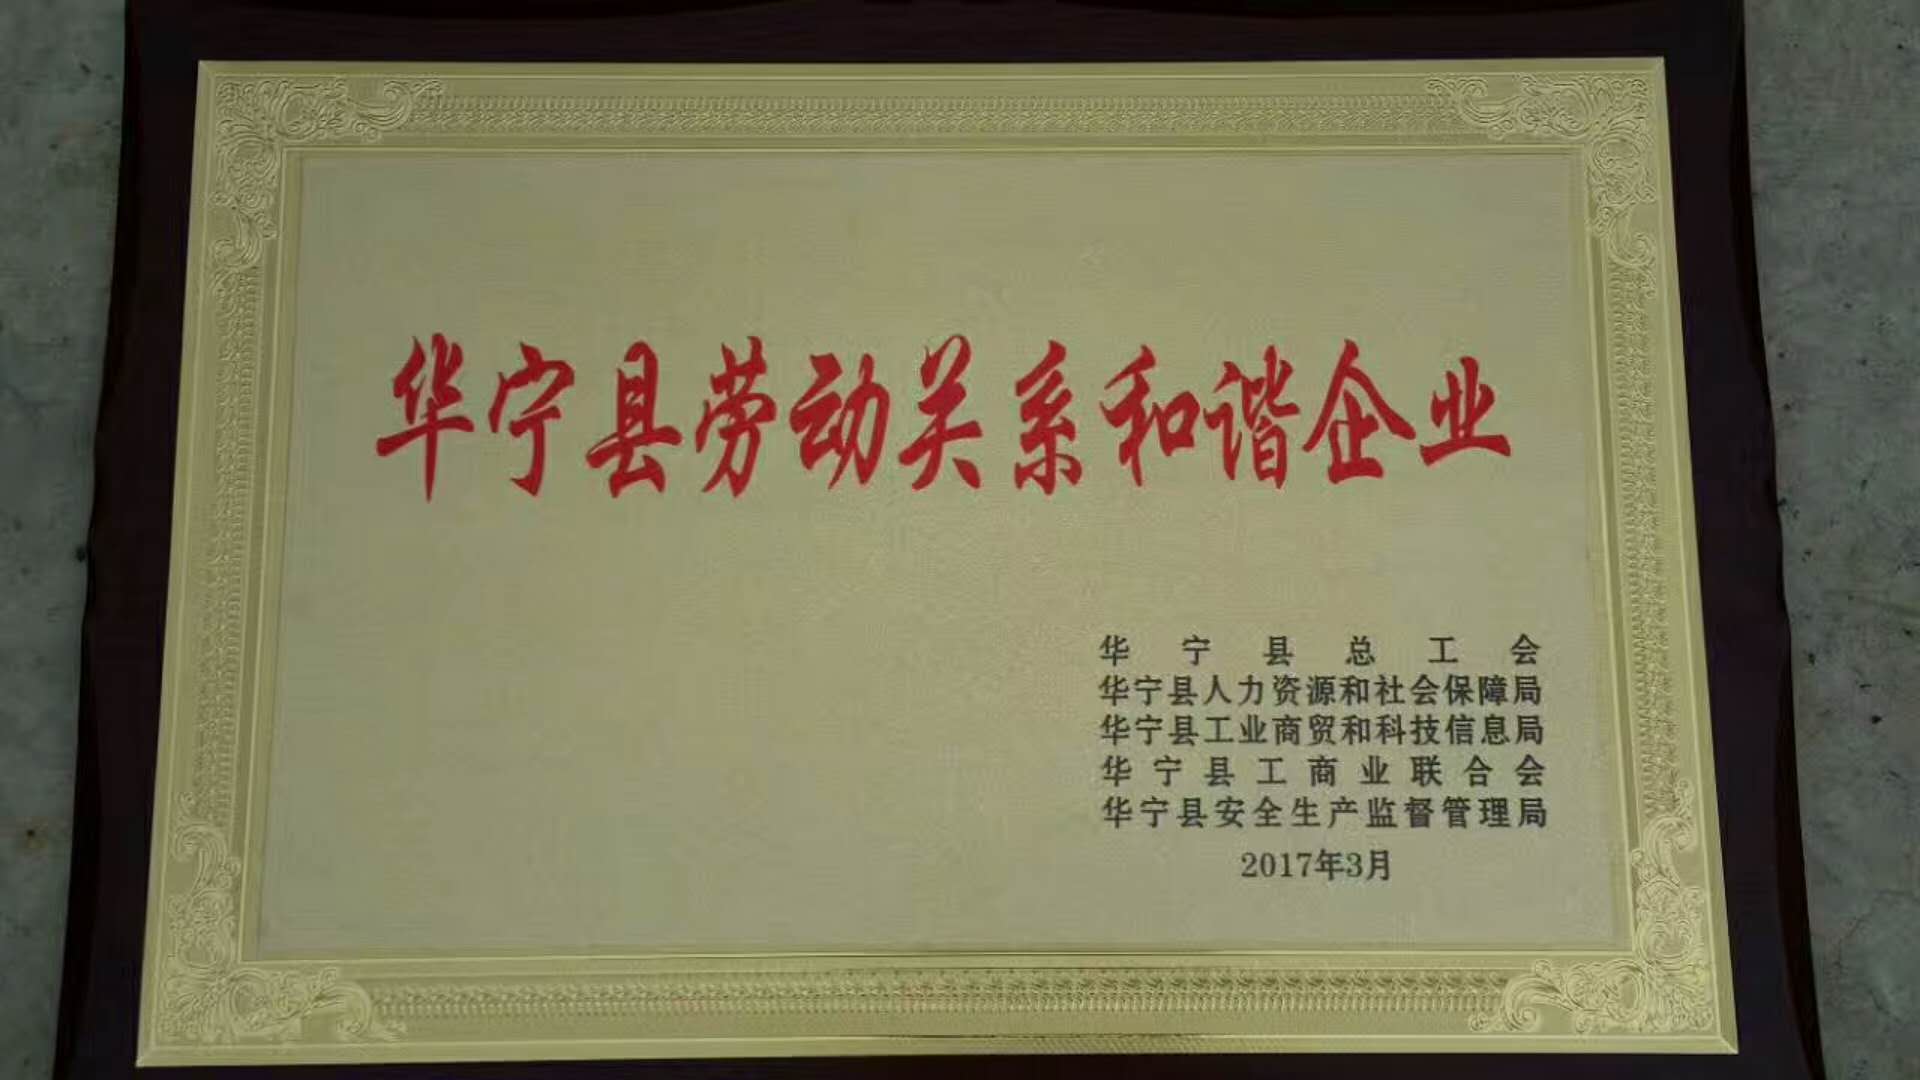 华宁县劳动关系和谐企业
华宁县总工会
华宁县人力资源和社会保障局
华宁县工业商贸和科技信息局
华宁县工商业联合会
华宁县安全生产监督管理局
2017年3月